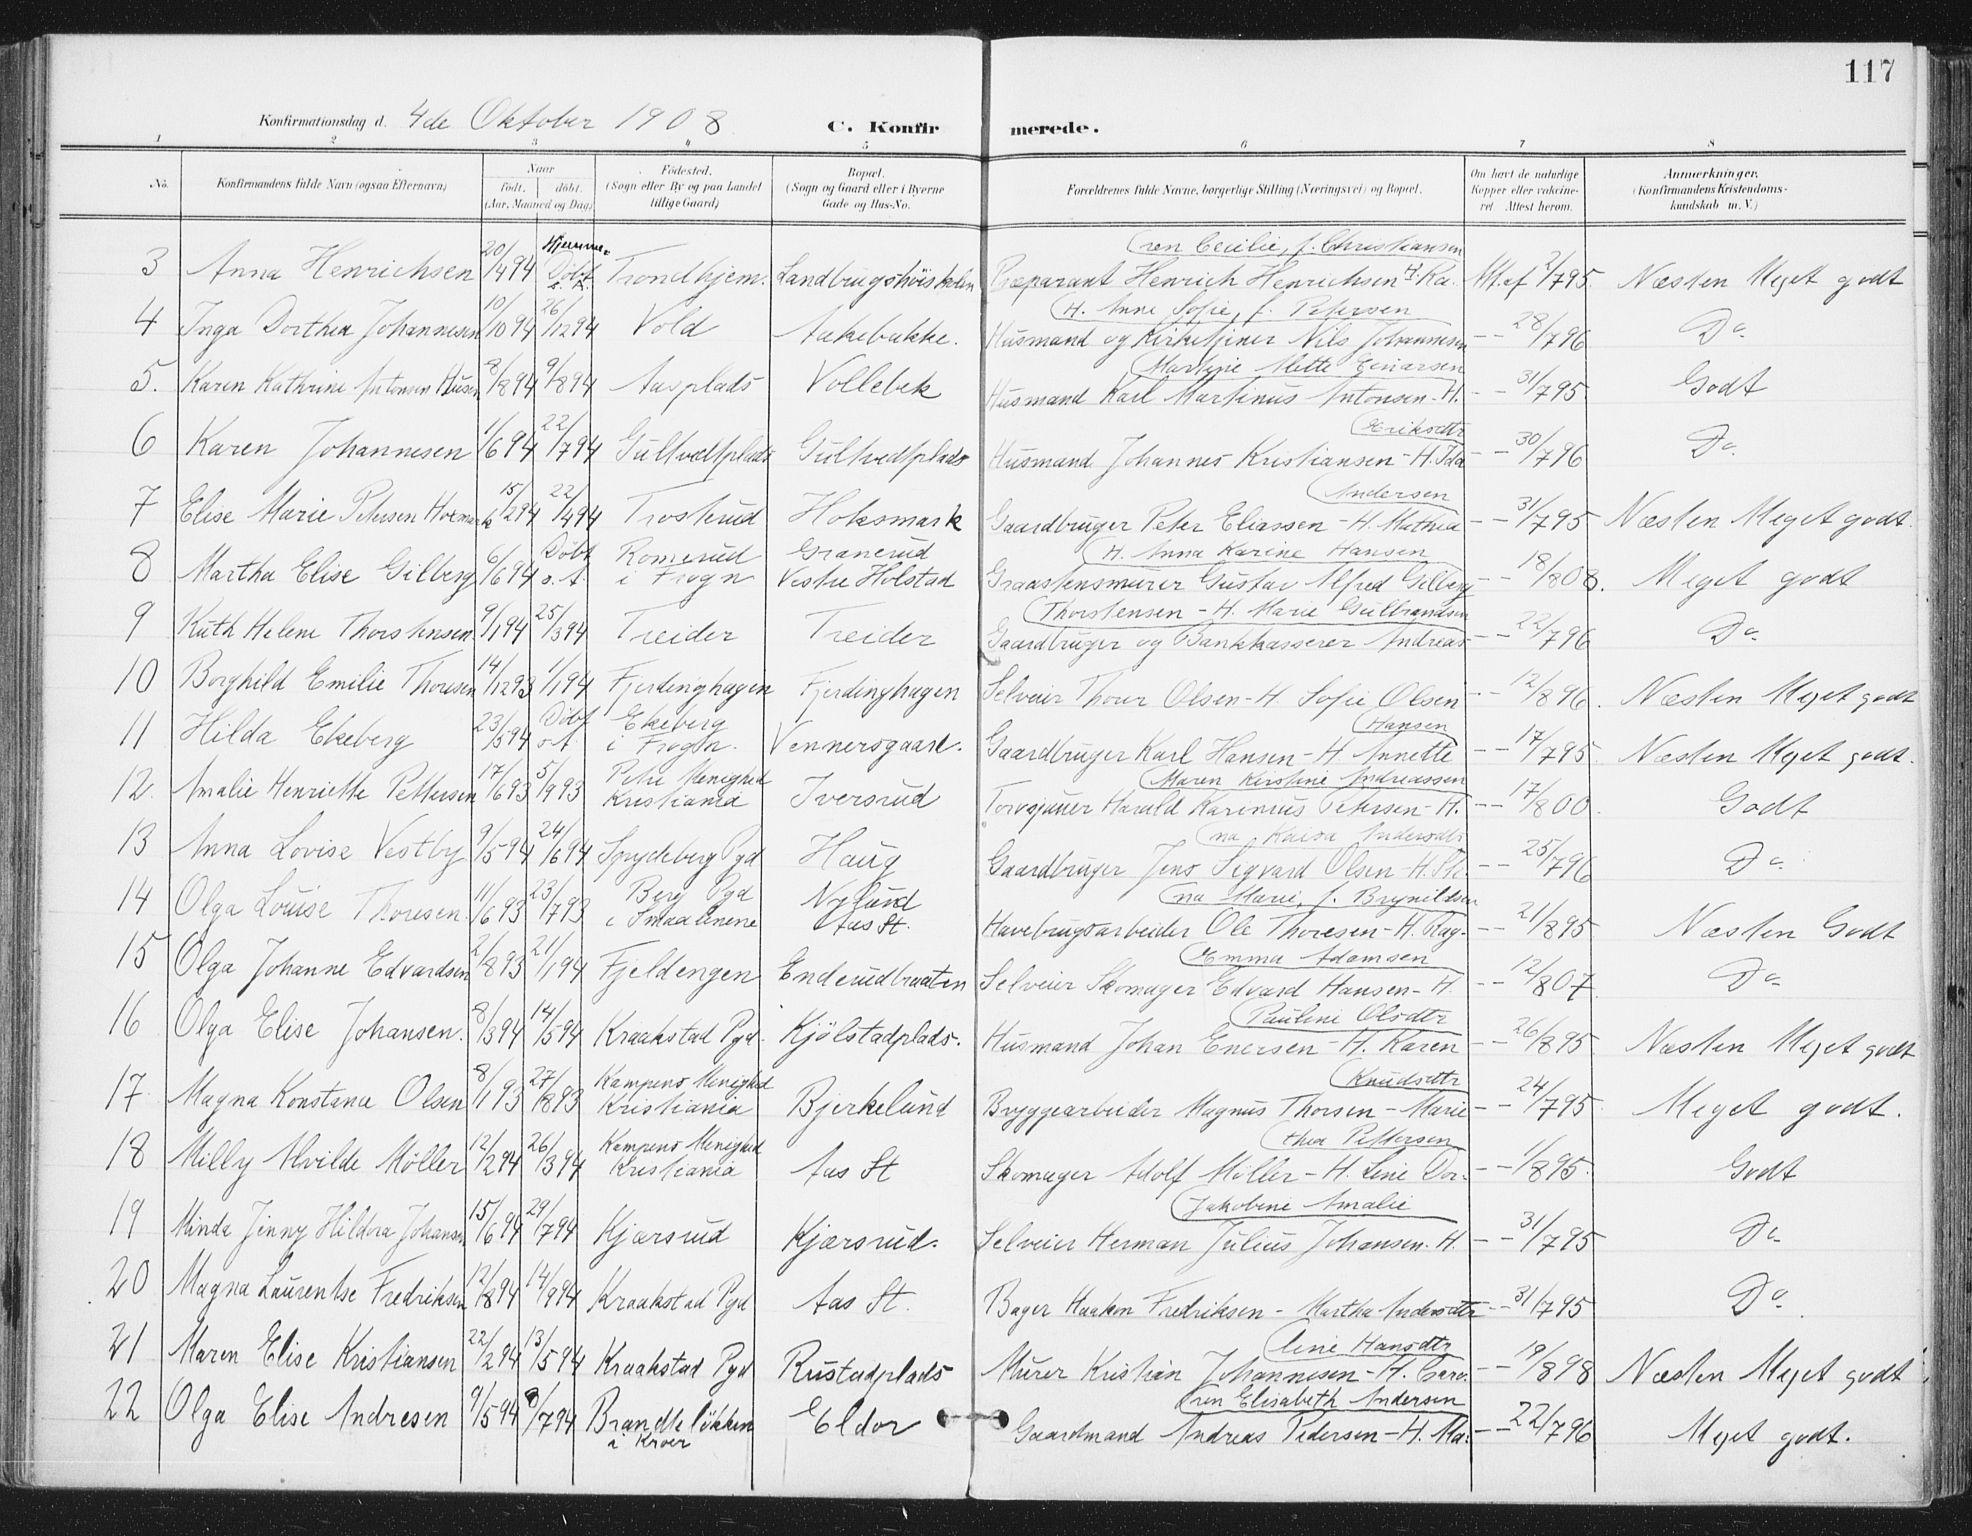 117
Konfirmationsdag d. 4de Oktober 1908 C. Konfir merede.
1 2 3 4 5 6 7 8
No. Konfirmandens fulde Navn (ogsaa Efternavn) Naar født. døbt. (Aar, Maaned og Dag) Fødested. (Sogn eller By og paa Landet tillige Gaard) Bopæl. (Sogn og Gaard eller i Byerne Gade og Hus-No. Forældrenes fulde Navne, borgerlige Stilling (Næringsvei) og Bopæl. Om havt de naturlige Kopper eller vakcineret. Attest herom. Anmerkninger. (Konfirmandens Kristendomskundskab m. V.)
3 Anna Henrichsen 20/4 94 Hjemme- Døbt Trondhjem. Landbrugshöiskolen Præparant Henrich Henrichsen H. Ka- (ren Cecilie, f. Christiansen Att. af 2/7 95. Næsten Meget godt
4 Inga Dorthea Johannesen 10/10 94 26/12 94 Vold Aakebakke. Husmand og Kirketjener Nils Johannesen (H. Anne Sofie, f. Petersen -- 28/7 96 Do.
5. Karen Kathrine Antonsen Husen 8/8 94 9/8 94 Aasplads Vollebek Husmand Karl Martinus Antonsen - H. (Martine Mette Einarsen -- 31/7 95 Godt
6 Karen Johannesen 1/6 94 22/7 94 Gultvedtplads Gultvedtplads Husmand Johannes Kristiansen - H. Ida (Eriksdtr -- 30/7 96 Do.
7 Elise Marie Petersen 15/2 94 22/4 94 Trosterud Hoksmark Gaardbruger Peter Eliassen - H. Mathea (Andersen -- 31/7 95 Næsten Meget godt.
8 Martha Elise Gilberg 6/6 94 Døbt o. A. Romerud i Frogn Granerud Vestre Holstad Graastensmurer Gustav Alfred Gilberg (H. Anna Karine Hansen -- 18/8 08. Meget godt
9 Ruth Helene Thorstensen 9/1 94 25/3 94 Treider Treider Gaardbruger og Bankkasserer Andreas (Thorstensen - H. Marie Gulbrandsen -- 22/7 96 Do.
10 Borghild Emilie Thoresen 14/12 93 1/1 94 Fjerdinghagen Fjerdinghagen Selveier Thorer Olsen - H. Sofie Olsen -- 12/8 96. Næsten Meget godt
11 Hilda Ekeberg 23/5 94 Døbt o. A. Ekeberg i Frogn. Vennersgaard. Gaardbruger Karl Hansen - H. Annette (Hansen -- 17/7 95. Næsten Meget godt.
12. Amalie Henriette Pettersen 17/6 93 5/9 93 Petri Menighed Kristiania Iversrud Torvsjauer Harald Karinius Petersen - H. (Maren Kirstine Andreassen -- 17/8 00. Godt
13 Anna Lovise Vestby 9/5 94 24/6 94 Spydeberg Pgd Haug Gaardbruger Jens Sigvard Olsen - H. Ste- (na Kaisa Andersdtr -- 25/7 96 Do.
14 Olga Louise Thoresen. 11/6 93 23/7 93 Berg Pgd i Smaalenene Nylund Aas St. Havebrugsarbeider Ole Thoresen - H. Rag- (na Marie, f. Brynildsen -- 21/8 95 Næsten Godt
15 Olga Johanne Edvardsen 2/8 93 21/1 94 Fjeldengen Enderudbraaten Selveier Skomager Edvard Hansen - H. (Emma Adamsen -- 12/8 07. Do.
16 Olga Elise Johansen. 8/3 94 14/5 94 Kraakstad Pgd. Kjölstadplads. Husmand Johan Enersen - H. Karen (Pauline Olsdtr -- 26/8 95 Næsten Meget godt
17 Magna Konstance Olsen 8/1 93 27/8 93 Kampens Menighed Kristiania Bjerkelund Bryggearbeider Magnus Thorsen - Marie (Knudsdtr -- 24/7 95. Meget godt.
18 Milly Alvilde Möller 12/2 94 26/3 94 Kampens Menighed Kristiania Aas St Skomager Adolf Möller - H. Line Dor- (thea Pettersen -- 1/8 95. Godt
19 Minda Jenny Hildora Johansen 15/6 94 29/7 94 Kjærsrud Kjærsrud. Selveier Herman Julius Johansen. H. (Jakobine Amalie -- 31/7 95 Do.
20 Magna Laurentse Fredriksen 12/8 94 14/9 94 Kraakstad Pgd Aas St. Bager Haakon Fredriksen - Martha Andersdtr -- 31/7 95 Do.
21 Maren Elise Kristiansen 22/2 94 13/5 94 Kraakstad Pgd Rustadplads Murer Kristian Johannesen - H. Caro- (line Hansdtr -- 19/8 98 Næsten Meget godt
22 Olga Elise Andresen 9/5 94 8/7 94 Brandtelökken i Kroer Eldor Gaardmand Andreas Pedersen - H. Ma- (ren Elisabeth Andersen -- 22/7 96 Meget godt.